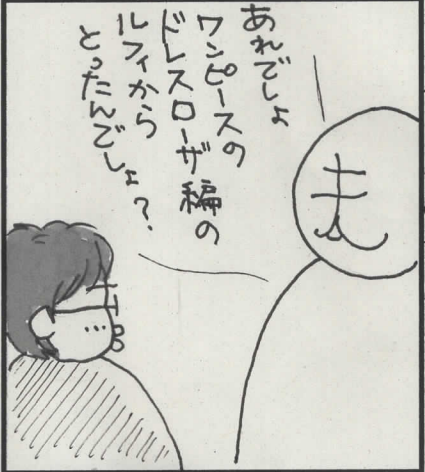 あれでしょ
ワンピースの
ドレスローザ編の
ルフィから
とったんでしょ?
夫
…